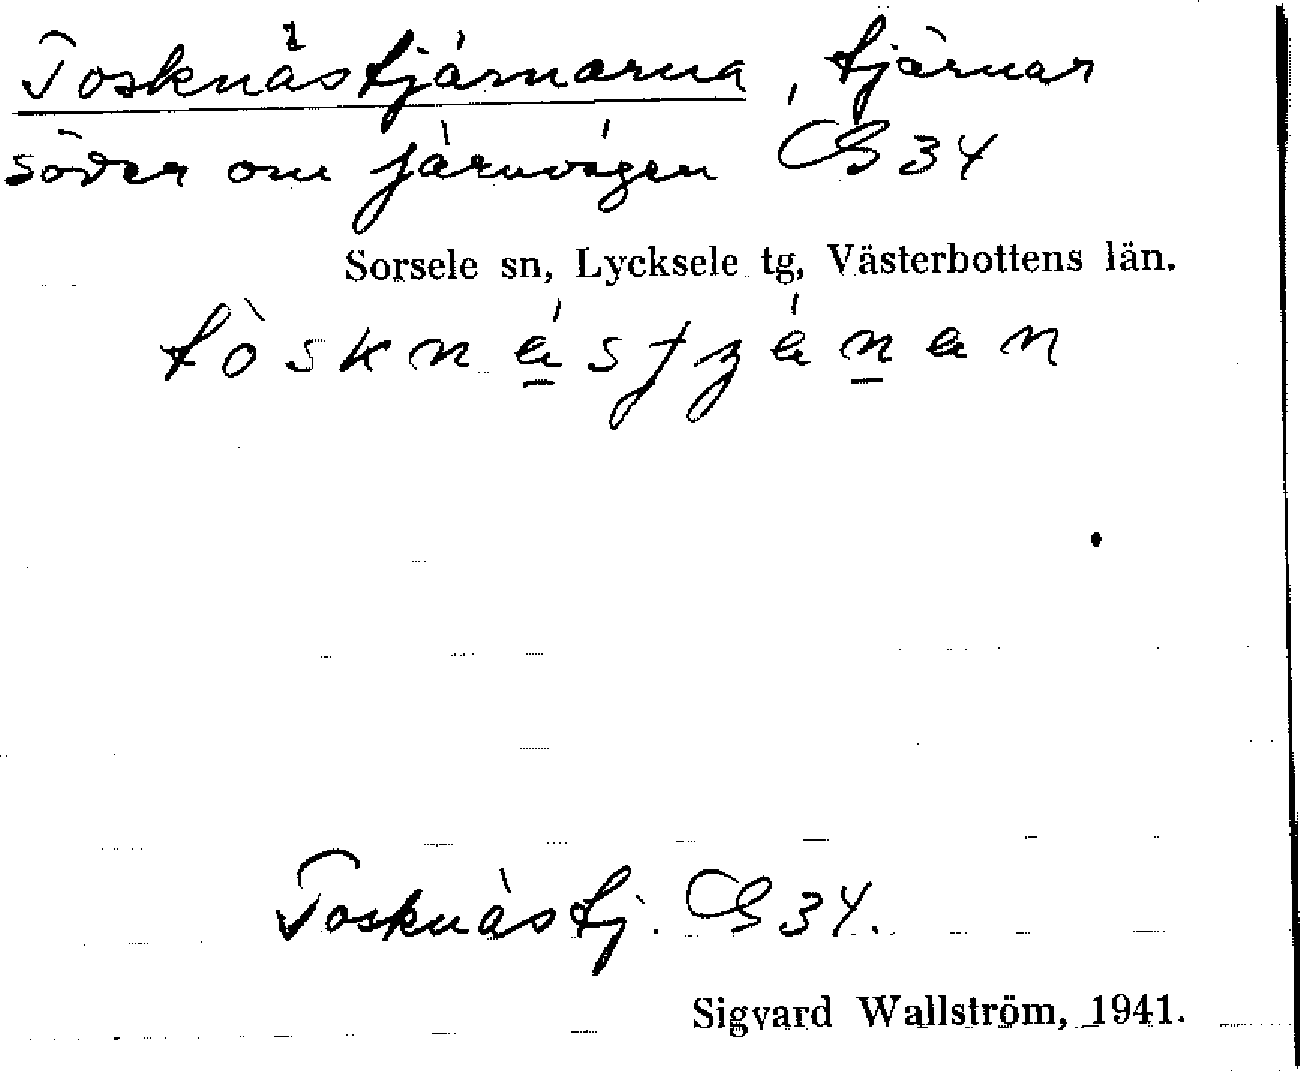 Tosknästjärnarna, tjärnar
söder om järnvägen CG 34
Sorsele sn, Lycksele tg, Västerbottens län.
Tosknästj. CG 34.
Sigvard Wallström, 1941.